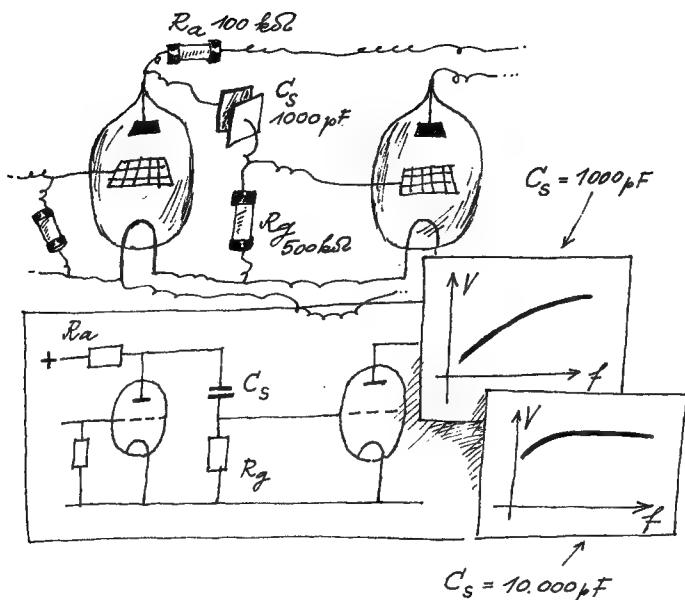 Ra 100 kΩ
Cs
1000 pF
Rg
500 kΩ
...
...
...
Cs = 1000 pF
V
f
Ra
+
Cs
Rg
V
f
Cs = 10.000 pF